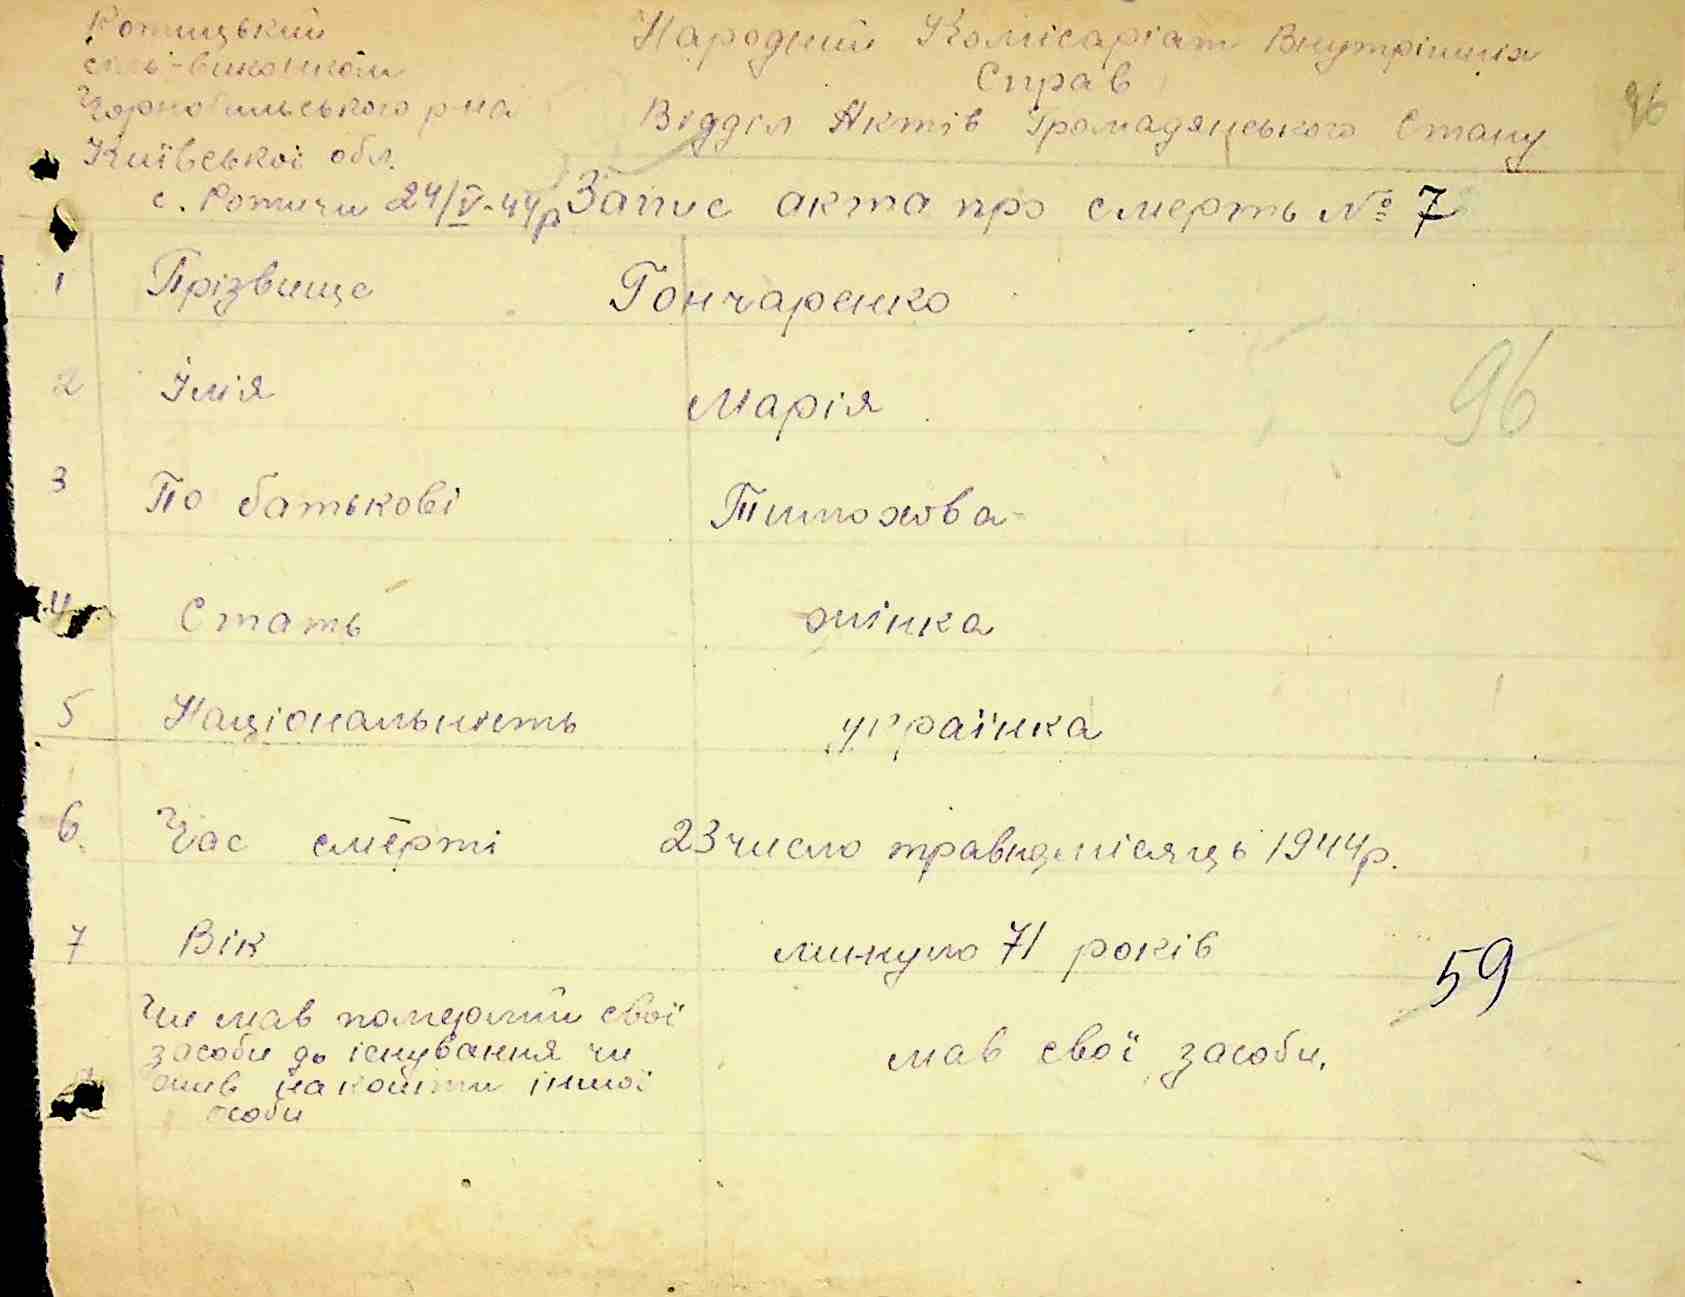 Ротицький
сіль-виконком
Чорнобильського р-на
Київської обл.
с. Ротичи 24/V-44р
Народний Комісаріат Внутрішніх
Справ
Відділ Актів Громадянського Стану
96
Запис акта про смерть № 7
1 Прізвище Гончаренко
2 Імія Марія
96
3 По батькові Тимохова
4 Стать жінка
5 Національність українка
6. Час смерті 23 число травня місяць 1944р.
7 Вік минуло 71 років
59
Чи мав померлий свої
засоби до існування чи
жив на кошти іншої
особи
мав свої засоби.